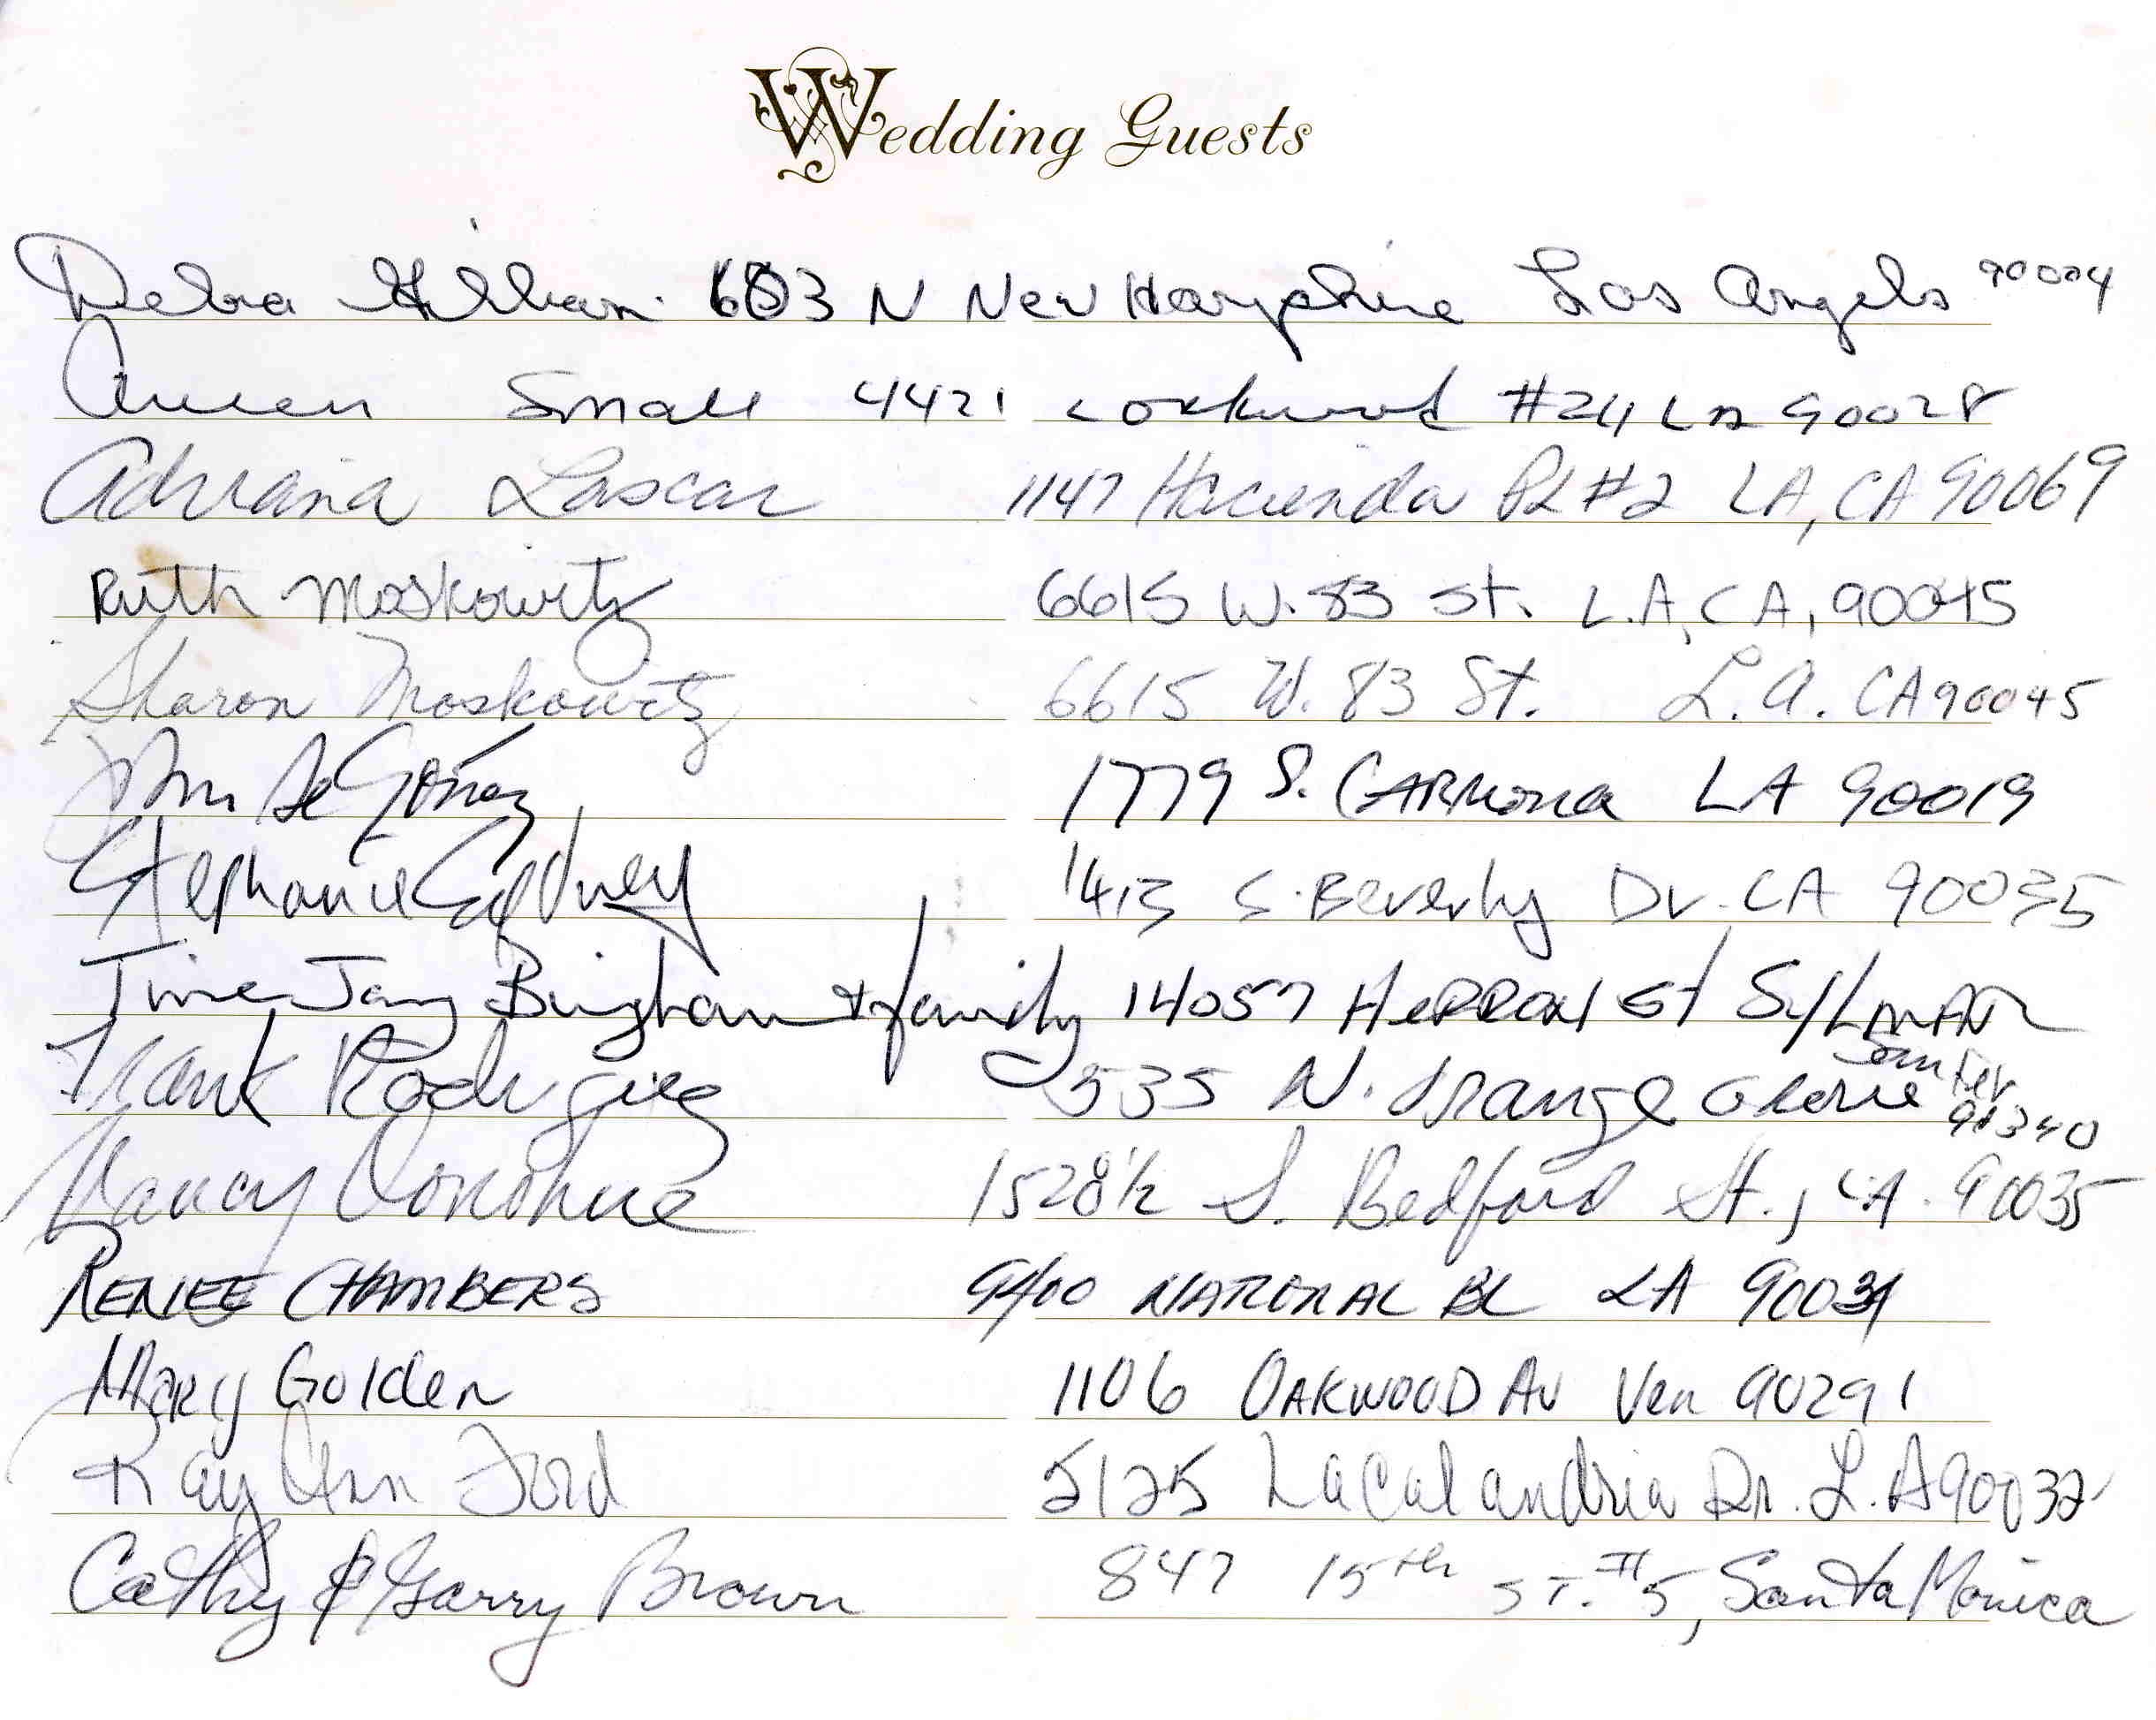 Wedding Guests
Debra 603 N New Hampshire Los Angels 90004
Small 4421 Lockwood #24 LA 90028
Adriana Lascar 1147 Hacienda Pl #2 LA, CA 90069
Ruth Moskowitz 6615 W. 83 St. L.A, CA, 90045
Sharon Moskowitz 6615 W. 83 St. L.A. CA 90045
De Gomez 1779 S. CARMONA LA 90019
Stephanie 1413 S. Beverly Dr. LA 90035
Bingham + family 14057 HERRON St SYLMAR
Frank Rodriguez 535 N. Orange Grove San Fer 91340
Nancy Donohue 1528 1/2 S. Bedford St., LA. 90035
RENEE CHAMBERS 9400 NATIONAL BL LA 90034
MARY Golden 1106 OAKWOOD AV Ven 90291
Kay Ann Ford 5125 La Calandria Dr. L.A 90032
Cathy & Garry Brown 847 15th ST. #5, Santa Monica